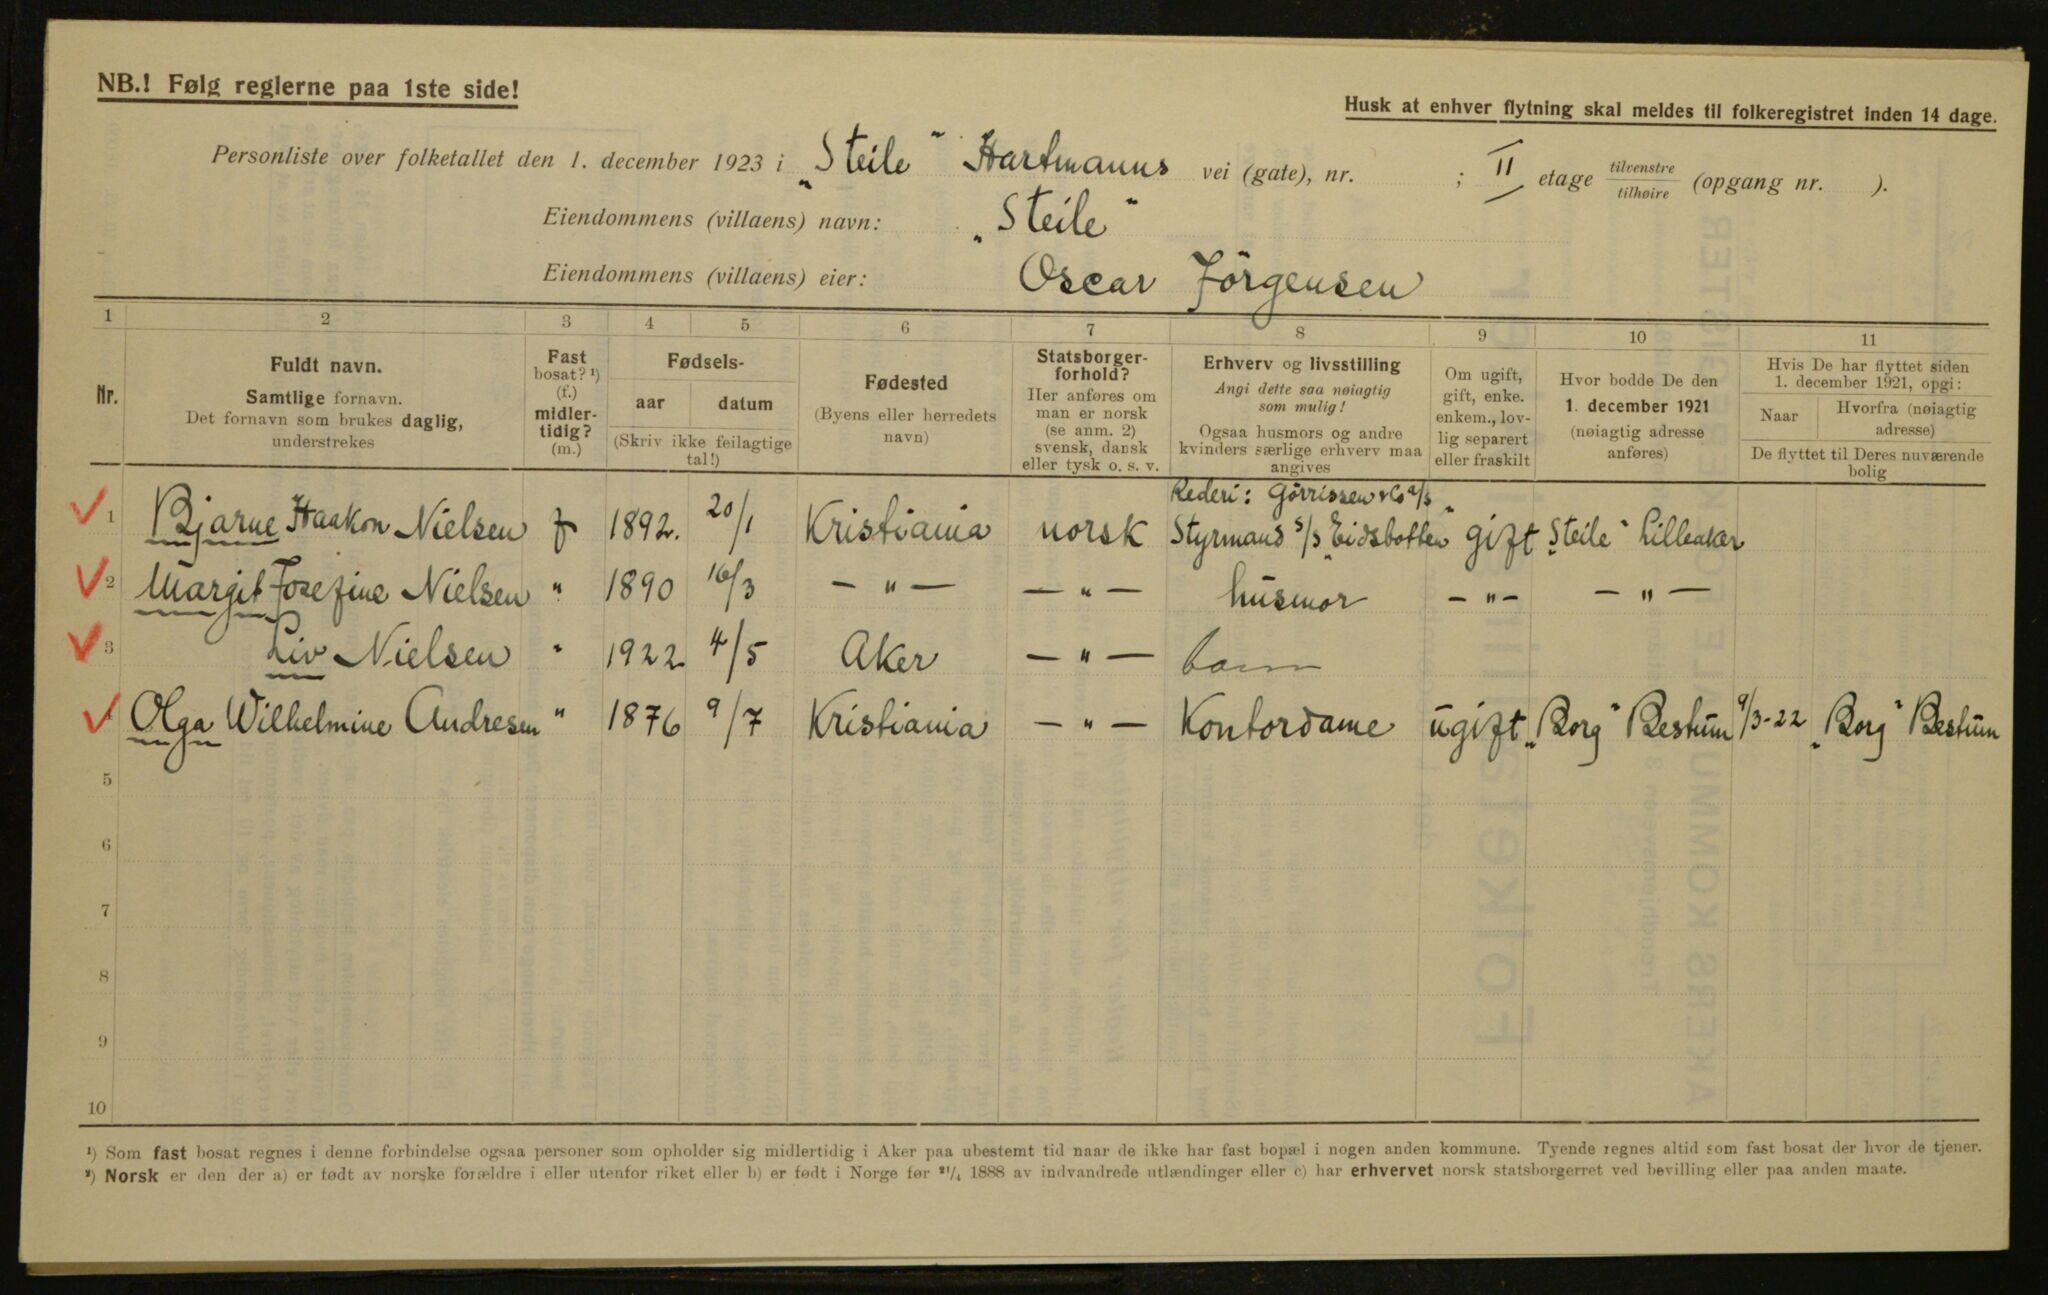 NB.! Følg reglerne paa 1ste side!
Husk at enhver flytning skal meldes til folkeregistret inden 14 dage.
Personliste over folketallet den 1. december 1923 i „Steile“ Hartmanns vei (gate), nr. ; II etage tilvenstre/tilhøire (opgang nr. ).
Eiendommens (villaens) navn: „Steile“
Eiendommens (villaens) eier: Oscar Jörgensen
1 2 3 4 5 6 7 8 9 10 11
Nr.
Fuldt navn.
Samtlige fornavn.
Det fornavn som brukes daglig, understrekes
Fast bosat? ¹) (f.) midler-tidig? (m.)
Fødsels-
aar
datum
(Skriv ikke feilagtige tal!)
Fødested
(Byens eller herredets navn)
Statsborger-forhold?
Her anføres om man er norsk (se anm. 2) svensk, dansk eller tysk o. s. v.
Erhverv og livsstilling
Angi dette saa nøiagtig som mulig!
Ogsaa husmors og andre kvinders særlige erhverv maa angives
Om ugift, gift, enke. enkem., lov-lig separert eller fraskilt
Hvor bodde De den 1. december 1921 (nøiagtig adresse anføres)
Hvis De har flyttet siden 1. december 1921, opgi:
Naar
Hvorfra (nøiagtig adresse)
De flyttet til Deres nuværende bolig
Rederi: Görrissen & Co a/s
1 Bjarne Haakon Nielsen f 1892. 20/1 Kristiania norsk Styrmand s/s „Eidsbotten“ gift „Steile“ Lilleaker
2 Margit Josefine Nielsen " 1890 16/3 — " — — " — husmor — " — — " —
3 Liv Nielsen " 1922 4/5 Aker — " — barn
Olga Wilhelmine Andresen " 1876 9/7 Kristiania — " — Kontordame ugift „Borg“ Bestum 9/3-22 „Borg“ Bestum
5
6
7
8
9
10
¹) Som fast bosat regnes i denne forbindelse ogsaa personer som opholder sig midlertidig i Aker paa ubestemt tid naar de ikke har fast bopæl i nogen anden kommune. Tyende regnes altid som fast bosat der hvor de tjener.
²) Norsk er den der a) er født av norske forældre i eller utenfor riket eller b) er født i Norge før 21/4 1888 av indvandrede utlændinger eller c) har erhvervet norsk statsborgerret ved bevilling eller paa anden maate.